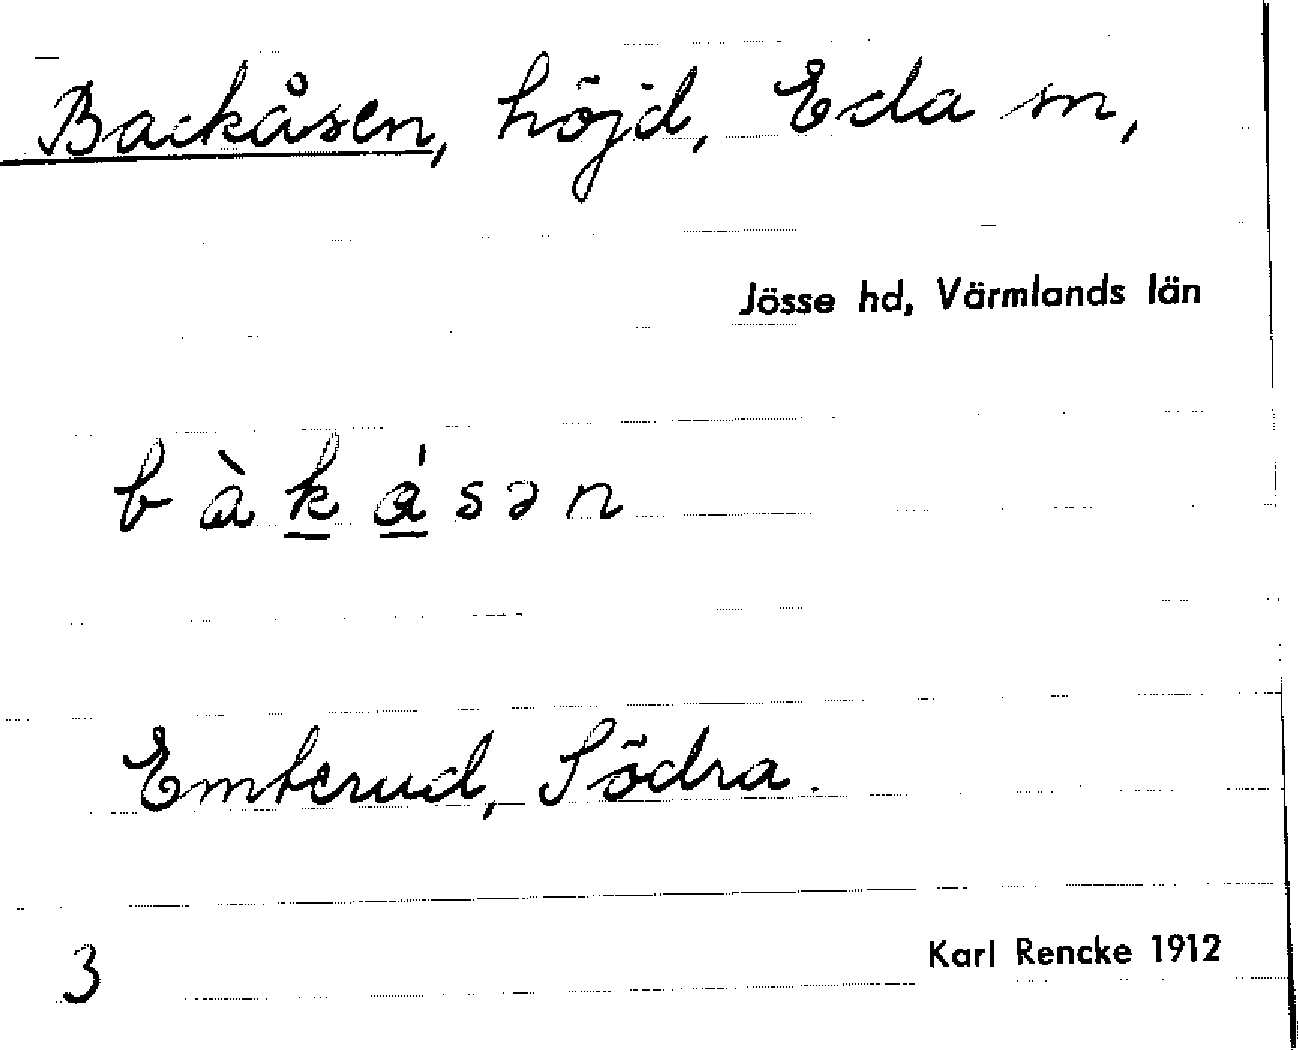 Backåsen, höjd, Eda sn,
Jösse hd, Värmlands län
bàkásən
Emterud, Södra.
3
Karl Rencke 1912